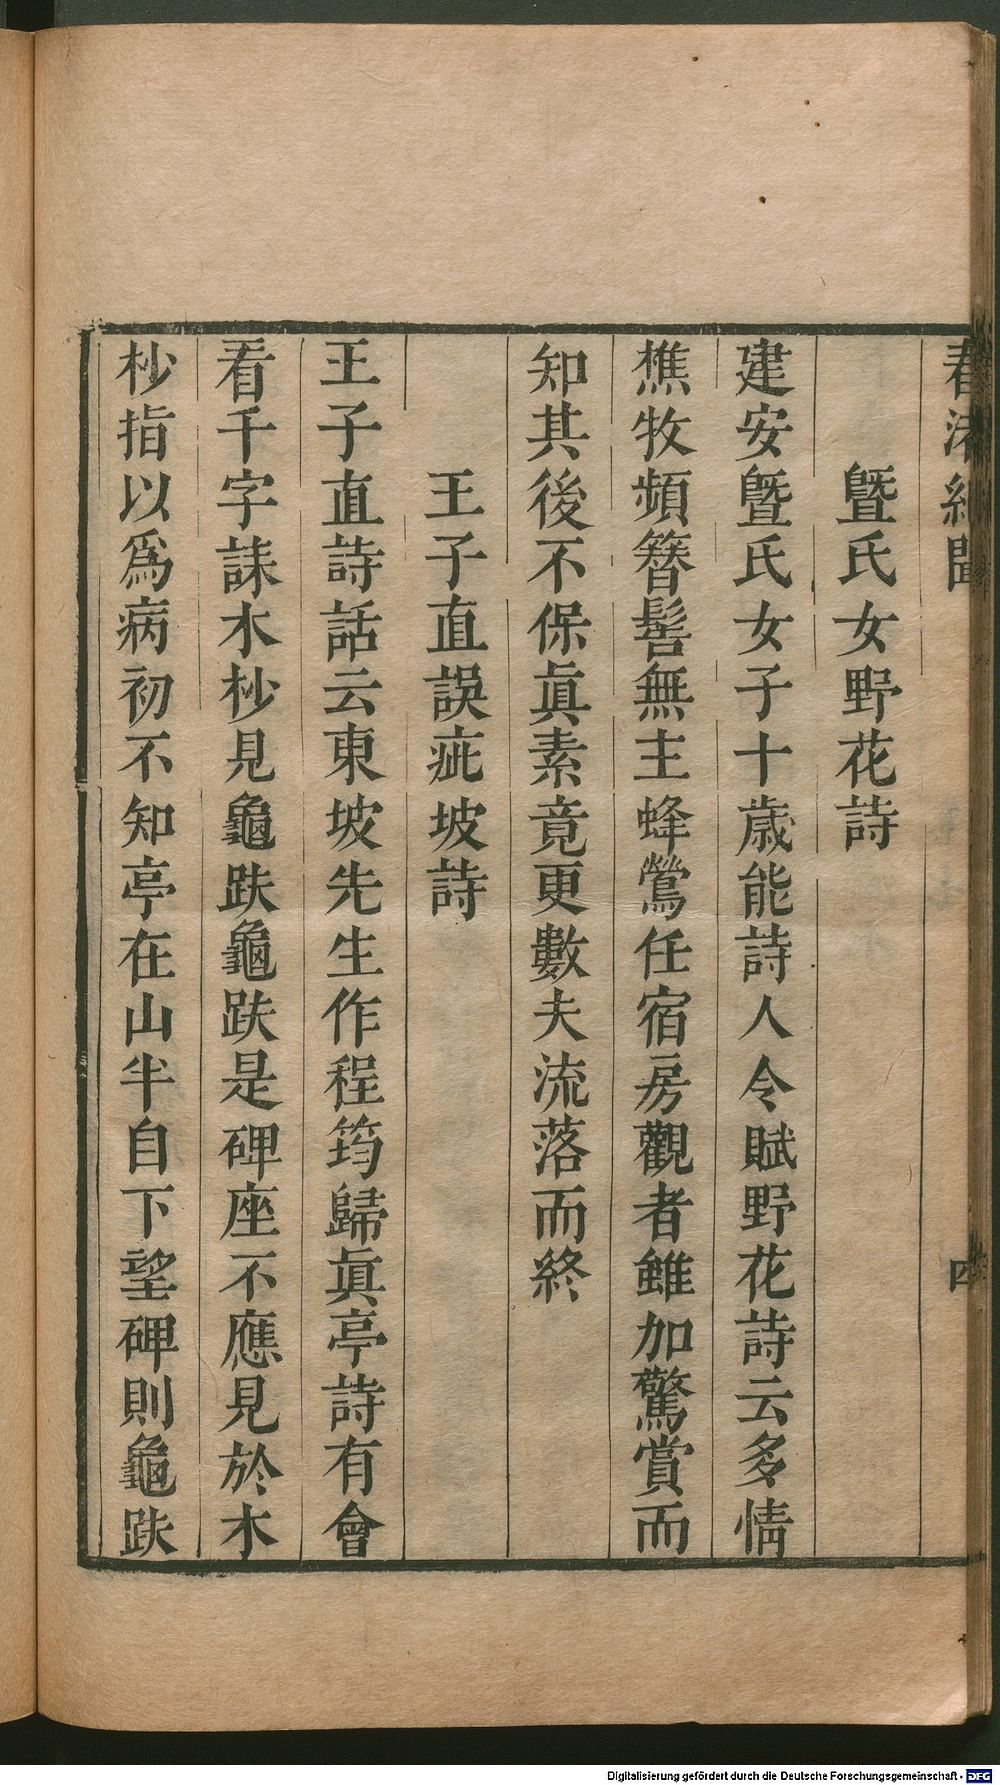 春渚紀聞 四
曁氏女野花詩
建安曁氏女子十歲能詩人令賦野花詩云多情
樵牧頻簪髻無主蜂鶯任宿房觀者雖加驚賞而
知其後不保眞素竟更數夫流落而終
王子直誤疵坡詩
王子直詩話云東坡先生作程筠歸眞亭詩有會
看千字誄木杪見龜趺龜趺是碑座不應見於木
杪指以爲病初不知亭在山半自下望碑則龜趺
Digitalisierung gefördert durch die Deutsche Forschungsgemeinschaft - DFG